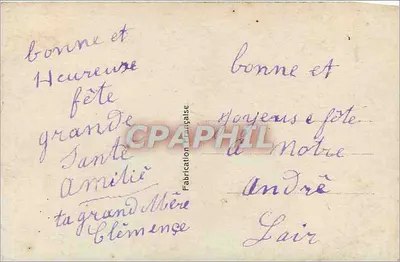 bonne et
Heureuse
fête
grande
Santé
Amitié
ta grand Mère
Clémençe
Fabrication Française
CPAPHIL
bonne et
Joyeuse fête
à Notre
André
Lair